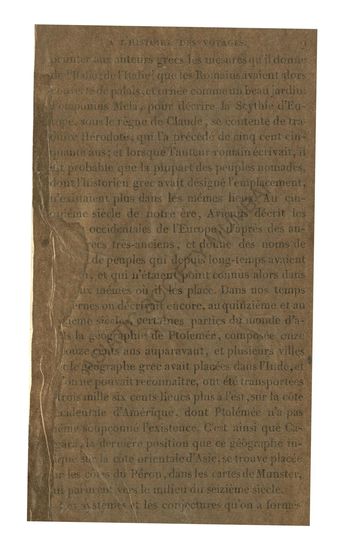 A L'HISTOIRE DES VOYAGES.
aux auteurs grecs les mesures qu'il donne
de l'Italie, de l'Italie que les Romains avaient alors
couverte de palais, et ornée comme un beau jardin
Pomponius Mela, pour décrire la Scythie d'Eu-
rope, sous le règne de Claude, se contente de tra-
duire Hérodote, qui l'a précédé de cinq cent cin-
quante ans; et lorsque l'auteur romain écrivait, il
est probable que la plupart des peuples nomades,
dont l'historien grec avait désigné l'emplacement,
n'existaient plus dans les mêmes lieux. Au cin-
quième siècle de notre ère, Aviénus décrit les
occidentales de l'Europe d'après des au-
grecs très-anciens, et donne des noms de
de peuples qui depuis long-temps avaient
et qui n'étaient point connus alors dans
eux mêmes où il les place. Dans nos temps
modernes on décrivait encore, au quinzième et au
seizième siècles, certaines parties du monde d'a-
près la géographie de Ptolémée, composée onze
douze cents ans auparavant, et plusieurs villes
que le géographe grec avait placées dans l'Inde, et
qu'on ne pouvait reconnaître, ont été transportées
trois mille six cents lieues plus à l'est, sur la côte
occidentale d'Amérique, dont Ptolémée n'a pas
même soupçonné l'existence. C'est ainsi que Ca-
tigara, la dernière position que ce géographe in-
dique sur la côte orientale d'Asie, se trouve placée
sur les côtes du Pérou, dans les cartes de Munster,
qui parurent vers le milieu du seizième siècle.
Les systèmes et les conjectures qu'on a formés